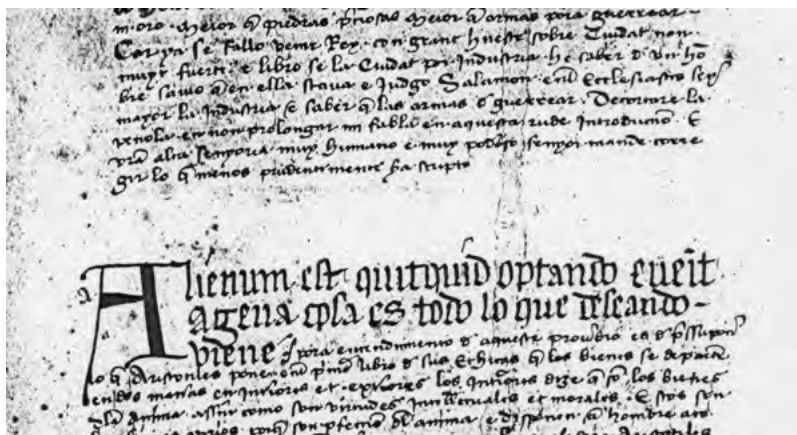 m oro · Meior q̃ piedras p̃ciosas Meior q̃ armas pora guerrear ·
Car ya se fallo venir Rey · con grant hueste sobre Ciudat non
muyt fuert · e libro se la Ciudat por Industria · he saber d' vn hō
bre sauio q̃ en ella staua e Judgo Salamon · enl Ecclesiastes seyer
mayor la Industria e saber q̃ las armas d' guerrear · Decortare la
en non prolongar mi fabla en aquesta rude Introductio · E
vr̃a alta senyoria muy humano e muy poderoso senyor mande corre
gir lo q̃ menos prudentmente ha scripto
Alienum est quitquid optando eueit
Agena cosa es todo lo que deseando-
viene · pora entendimento d' aqueste prouerbio es d' p̃ssuponer
lo q̃ Aristotiles pone enl p̃mo libro d' sus Ethicas q̃ los bienes se departē
en dos maneras en Intiores et · extiores los Intiores dize q̃ sō los bienes
dla Anima · assin como son virtudes Intellectuales et morales · E stos son
porq̃ son p̃fectiō dl' anima · e disponen a hombre